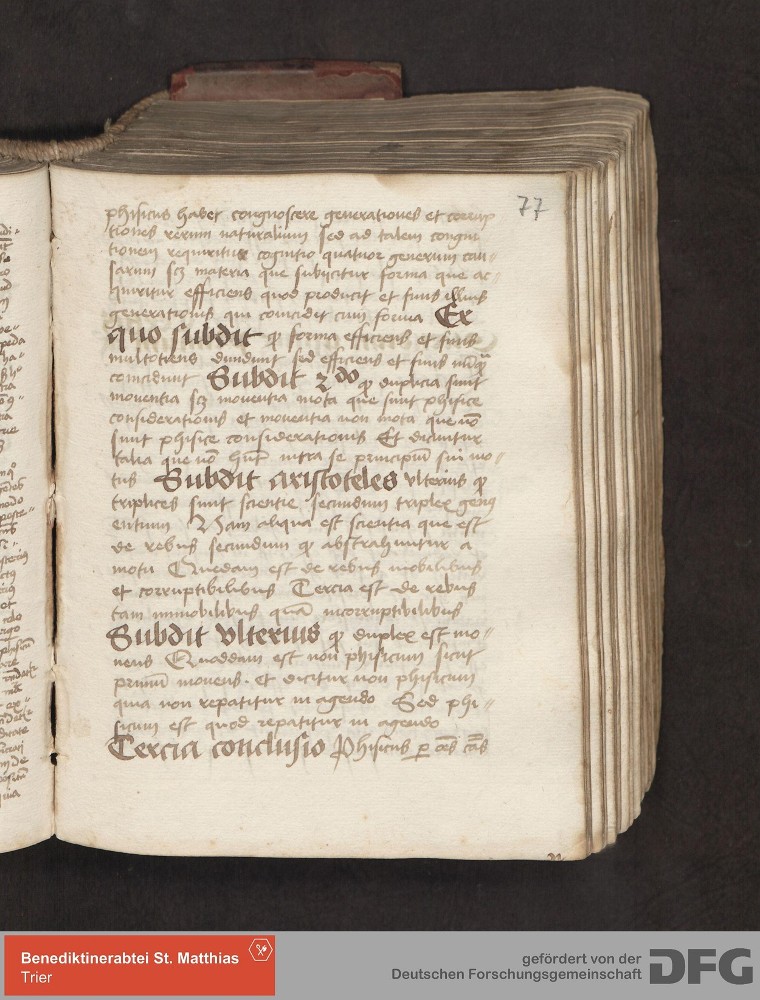 77
phisicus habet congnoscere generationes et corrup
tiones rerum naturalium sed ad talem congni
tionem requiritur cognitio quatuor generum cau-
sarum scz materia que subijcitur forma que ac-
quiritur efficiens quod producit et finis illius
generationis qui coincidit cum forma Ex
quo subdit ꝙ forma efficiens et finis
multotiens efficiens et finis
coincidunt Subdit 2do ꝙ duplicia sunt
moventia scz moventia mota que sunt phisice
considerationis et moventia non mota que nō
sunt phisice considerationis Et dicuntur
talia que nō hnt intra se principiū sui mo-
tus Subdit aristoteles ulterius ꝙ
triplices sunt scientie secundum triplex genus
entium Nam aliqua est scientia que est
de rebus secundum ꝙ abstrahuntur a
motu Quedam est de rebus mobilibus
et corruptibilibus Tercia est de rebus
tam immobilibus quā incorruptibilibus
Subdit vlterius ꝙ duplex est mo-
nens Quoddam est non phisicum sicut
primū movens. et dicitur non phisicum
quia non repatitur in agendo Sed phi-
sicum est quod repatitur in agendo
Tercia conclusio Phisicus ꝑ oēs cās
Benediktinerabtei St. Matthias
Trier
gefördert von der
Deutschen Forschungsgemeinschaft
DFG